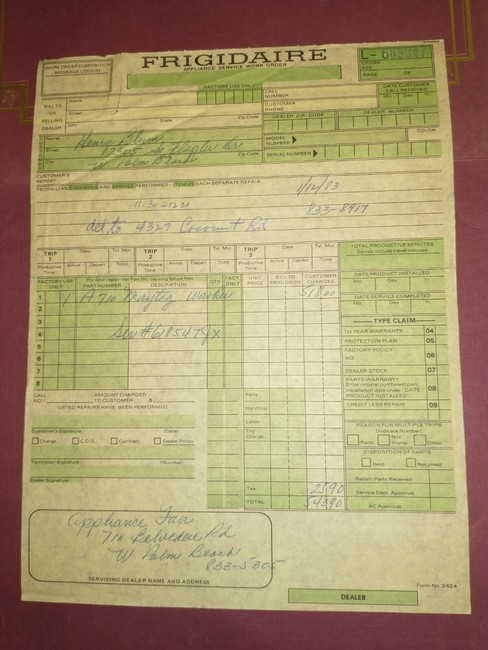 WORK ORDER DISPOSITION
MESSAGE CODE(S)
FRIGIDAIRE
APPLIANCE SERVICE WORK ORDER
FACTORY USE ONLY
L-
CROSS
REF.
PAGE OF
CALL
NUMBER
DATE CUSTOMER
CALL RECEIVED
Mo. Day Yr.
BILL TO
OR
SELLING
DEALER
Name
Street
City State Zip Code
CUSTOMER
PHONE
DEALER ZIP CODE DEALER NUMBER
Name
Henry Blum
Street
City Zip Code
W. Palm Beach
MODEL
NUMBER
COLOR
SERIAL NUMBER
CUSTOMER'S
REPORT
TECHNICIAN DIAGNOSIS AND SERVICE PERFORMED - ITEMIZE EACH SEPARATE REPAIR
1/12/83
11:30-12:30
833-8917
del to 4327 Coconut Rd
TRIP
1
Date Tvl. Min.
Productive
Time
Arrive Depart Total
TRIP
2
Date Tvl. Min.
Productive
Time
Arrive Depart Total
TRIP
3
Date Tvl. Min.
Productive
Time
Arrive Depart Total
TOTAL PRODUCTIVE MINUTES
Do not include travel
DATE PRODUCT INSTALLED
Mo. Day Yr.
DATE SERVICE COMPLETED
Mo. Day Yr.
FACTORY USE
ONLY
PART NUMBER DESCRIPTION
QTY
FACT
ONLY
UNIT
PRICE
BILL TO
FRIGIDAIRE
CUSTOMER
CHARGES
1 1 A710 Maytag Washer 518.00
2
3
4 Ser# 618547GX
5
6
7
8
TYPE CLAIM
1st YEAR WARRANTY 04
PROTECTION PLAN 05
FACTORY POLICY 06
NO.
DEALER STOCK 07
PARTS WARRANTY 08
Enter original purchase date
installation date under "DATE
PRODUCT INSTALLED"
CREDIT LESS REPAIR 09
CALL
NO.
AMOUNT CHARGED
TO CUSTOMER $
LISTED REPAIRS HAVE BEEN PERFORMED
Customer's Signature (Date)
Charge C.O.D. Contract Dealer Policy
Technician Signature (Number)
Dealer Signature
Parts
Handling
Labor
Trip
Charge
Tax 25.90
TOTAL 543.90
REASON FOR MULTIPLE TRIPS
(Indicate Number)
Parts Not
Home Other
DISPOSITION OF PARTS
Held Returned
Return Parts Received
Service Dept. Approval
AC Approval
Appliance Fair
710 Belvedere Rd
W. Palm Beach
833-5305
SERVICING DEALER NAME AND ADDRESS
Form No. 2424
DEALER